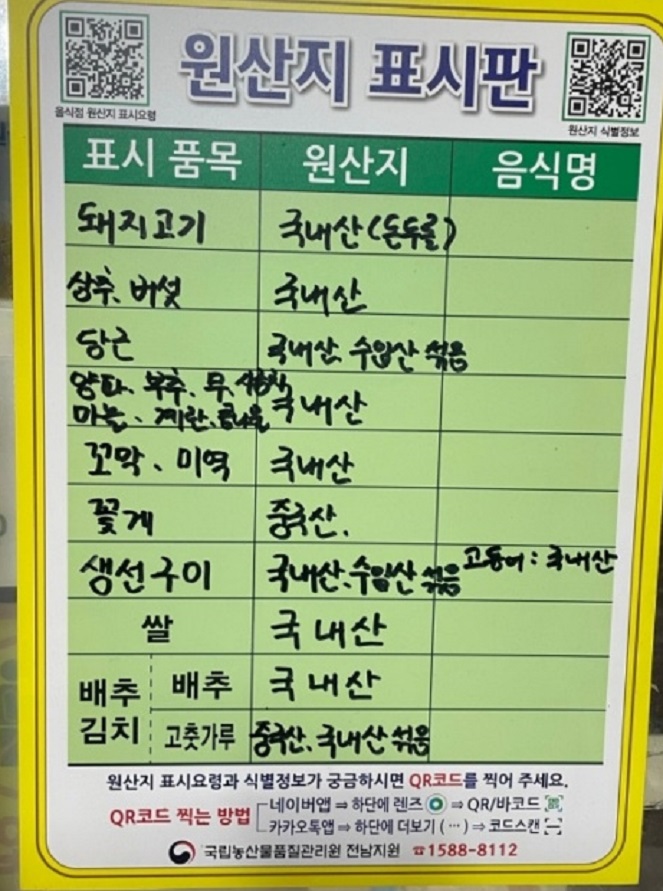 음식점 원산지 표시요령
원산지 표시판
원산지 식별정보
표시 품목 원산지 음식명
돼지고기 국내산(돈두루)
상추, 버섯 국내산
당근 국내산, 수입산 섞음
양파, 부추, 무, 시금치,
마늘, 계란, 콩나물 국내산
꼬막, 미역 국내산
꽃게 중국산.
생선구이 국내산, 수입산 섞음 고등어 : 국내산
쌀 국내산
배추김치 배추 국내산
고춧가루 중국산, 국내산 섞음
원산지 표시요령과 식별정보가 궁금하시면 QR코드를 찍어 주세요.
QR코드 찍는 방법
네이버앱 ⇒ 하단에 렌즈 ⇒ QR/바코드
카카오톡앱 ⇒ 하단에 더보기 (···) ⇒ 코드스캔
국립농산물품질관리원 전남지원 ☎1588-8112